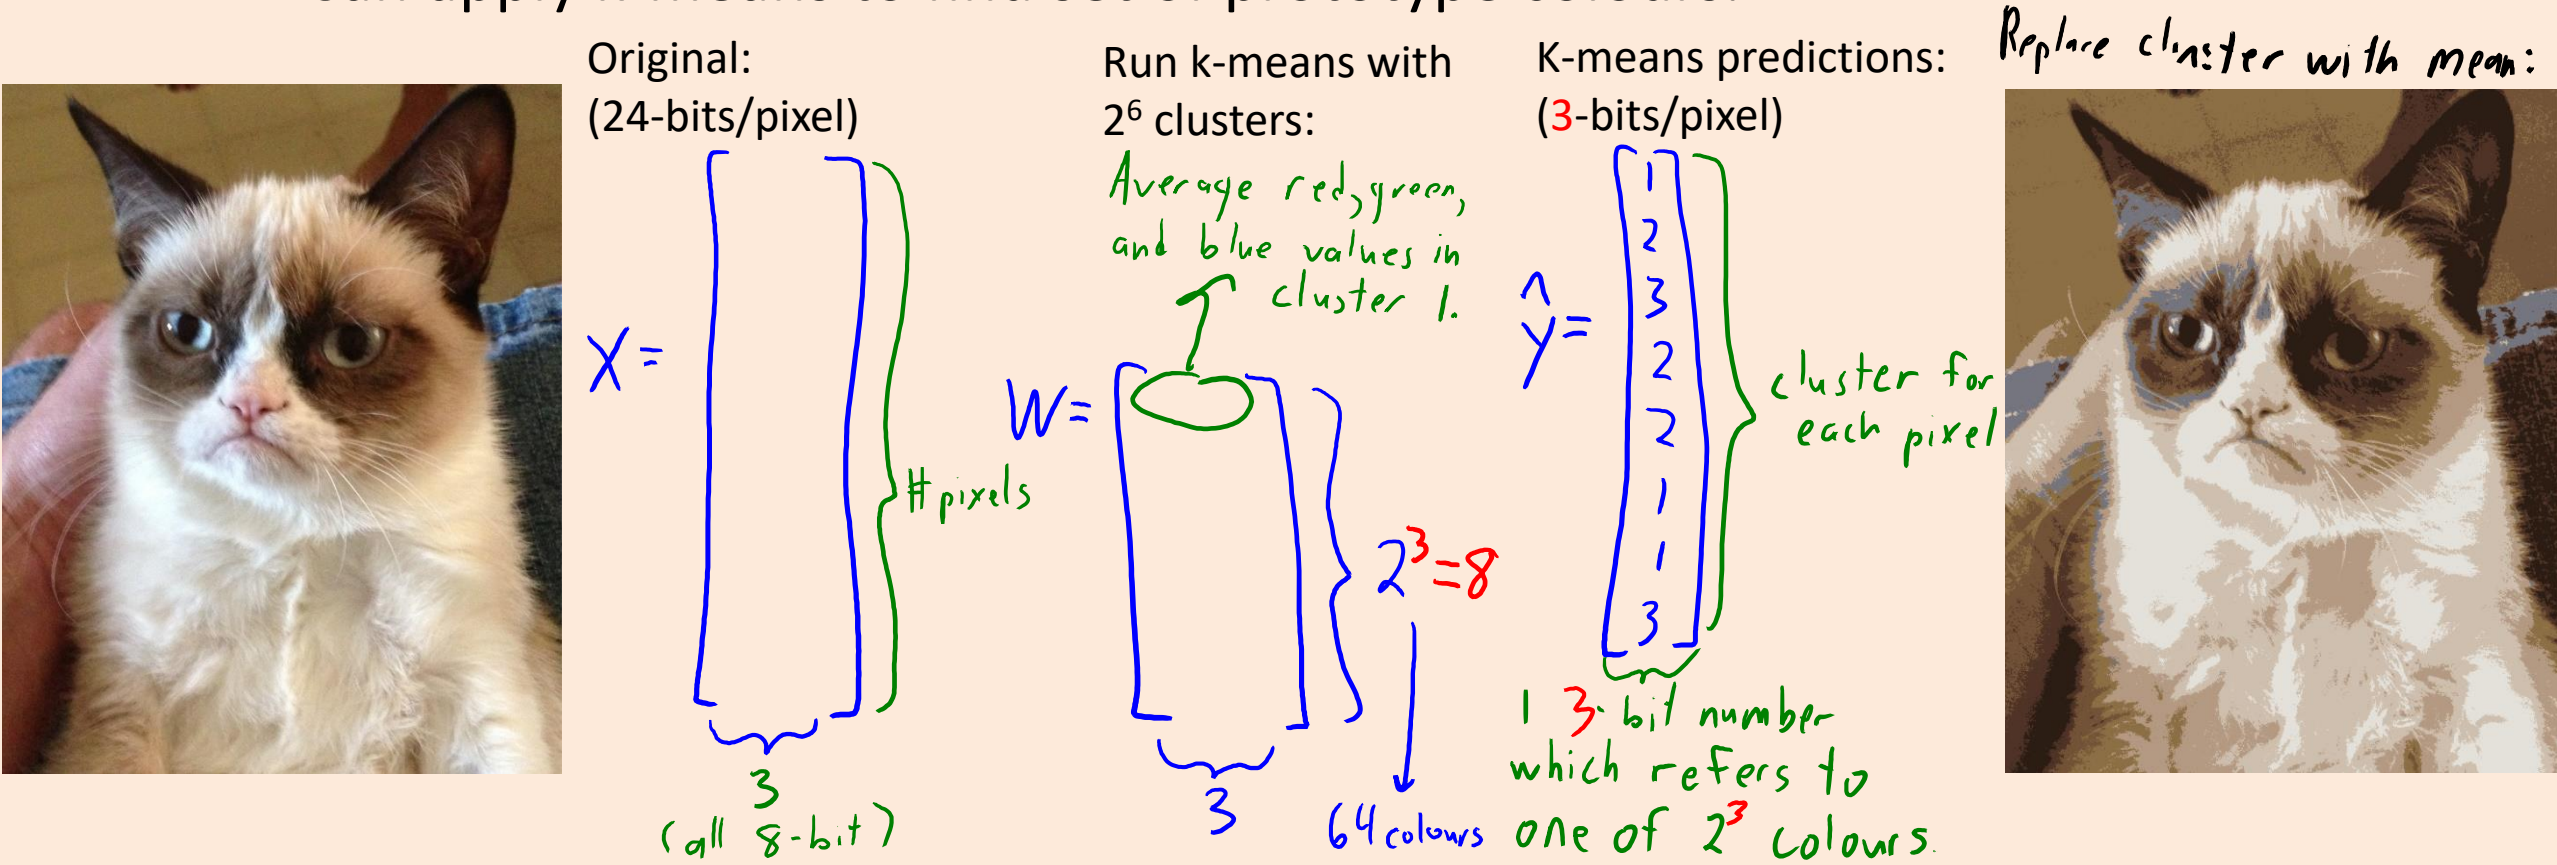 Original:
(24-bits/pixel)
X =
# pixels
3
(all 8-bit)
Run k-means with
2⁶ clusters:
Average red, green,
and blue values in
cluster 1.
W =
2³ = 8
3
64 colours
K-means predictions:
(3-bits/pixel)
ŷ =
1
2
3
2
2
1
1
3
cluster for
each pixel
1 3-bit number
which refers to
one of 2³ colours.
Replace cluster with mean: